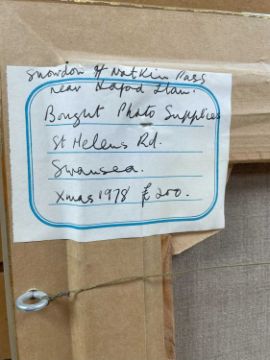 Snowdon & Watkin Pass
near Hafod Llan.
Bought Photo Supplies
St Helens Rd.
Swansea.
Xmas 1978 £200.